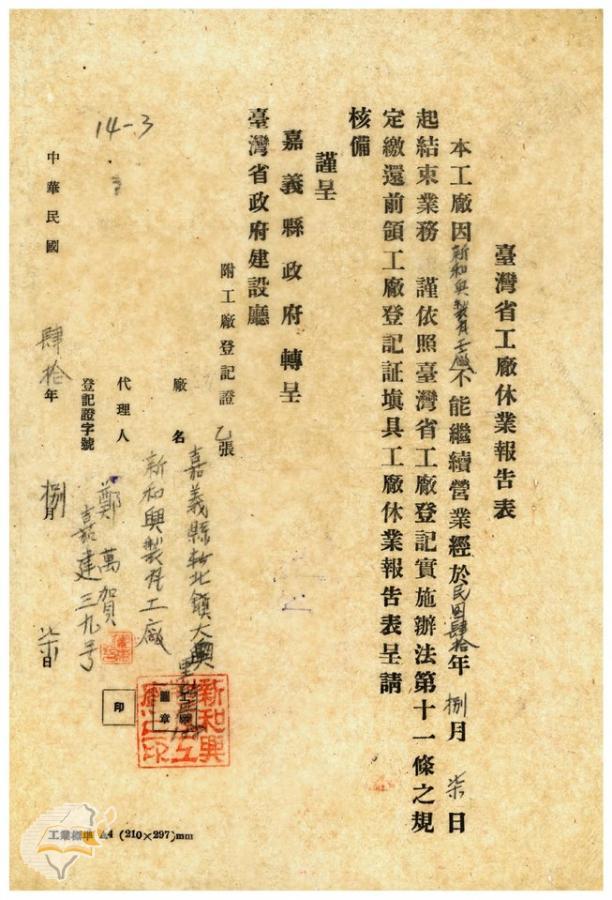 臺灣省工廠休業報告表
本工廠因新和興製瓦工廠不能繼續營業經於民国肆拾年捌月柒日
起結束業務 謹依照臺灣省工廠登記實施辦法第十一條之規
定繳還前領工廠登記証填具工廠休業報告表呈請
核備
謹呈
嘉義縣政府轉呈
臺灣省政府建設廳
附工廠登記證乙張
嘉義縣朴北鎮大興里
廠名 新和興製瓦工廠
代理人 鄭萬賀
登記證字號 嘉建三九号
圖章
印
新和興
中華民國肆拾年捌月柒日
14-3
工業標準 A4 (210×297)mm